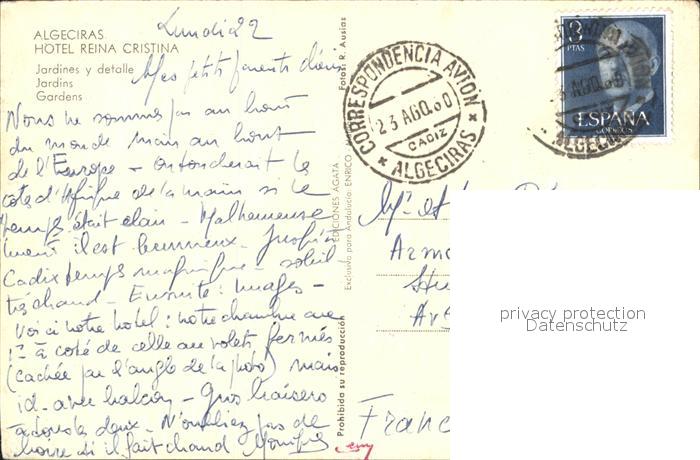 Lundi 22
ALGECIRAS
HOTEL REINA CRISTINA
Jardines y detalle
Jardins
Gardens
Mes petits parents chéris
Nous ne sommes pas au bout
du monde mais au bout
de l'Europe - on toucherait la
côte d'Afrique de la main si le
temps était clair - Malheureuse
ment il est brumeux - Jusqu'à
Cadix temps magnifique - soleil
très chaud - Ensuite : nuages -
Voici notre hotel : notre chambre au
1er à coté de celle aux volets fermés
(cachée par l'angle de la photo) mais
id. avec balcon - Gros baisers
à tous les deux - N'oubliez pas de
boire si il fait chaud Monique
Fotos: R. Ausias
EDICIONES AGATA
Exclusiva para Andalucía: ENRICO
Prohibida su reproducción
CORRESPONDENCIA AVION
23 AGO. 60
CADIZ
* ALGECIRAS *
3
PTAS
ESPAÑA
CORREOS
AGO. 60
CADIZ
Mr et
Arm
Ave
Franc
privacy protection
Datenschutz